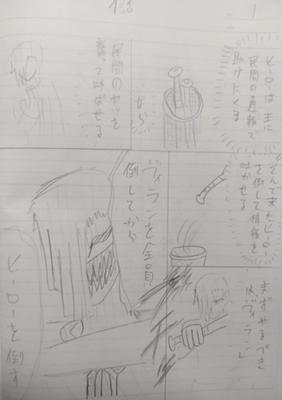 1話
1
ヒーローは主に
民間の通報で
助けにくる
なら
民間のヤツを
襲って叫ばせる
そんで来たヒーロー
を倒して情報を
吐かせる
まずやるべき
はヴィラン
ヴィランを全員
倒してから
ヒーローを倒す